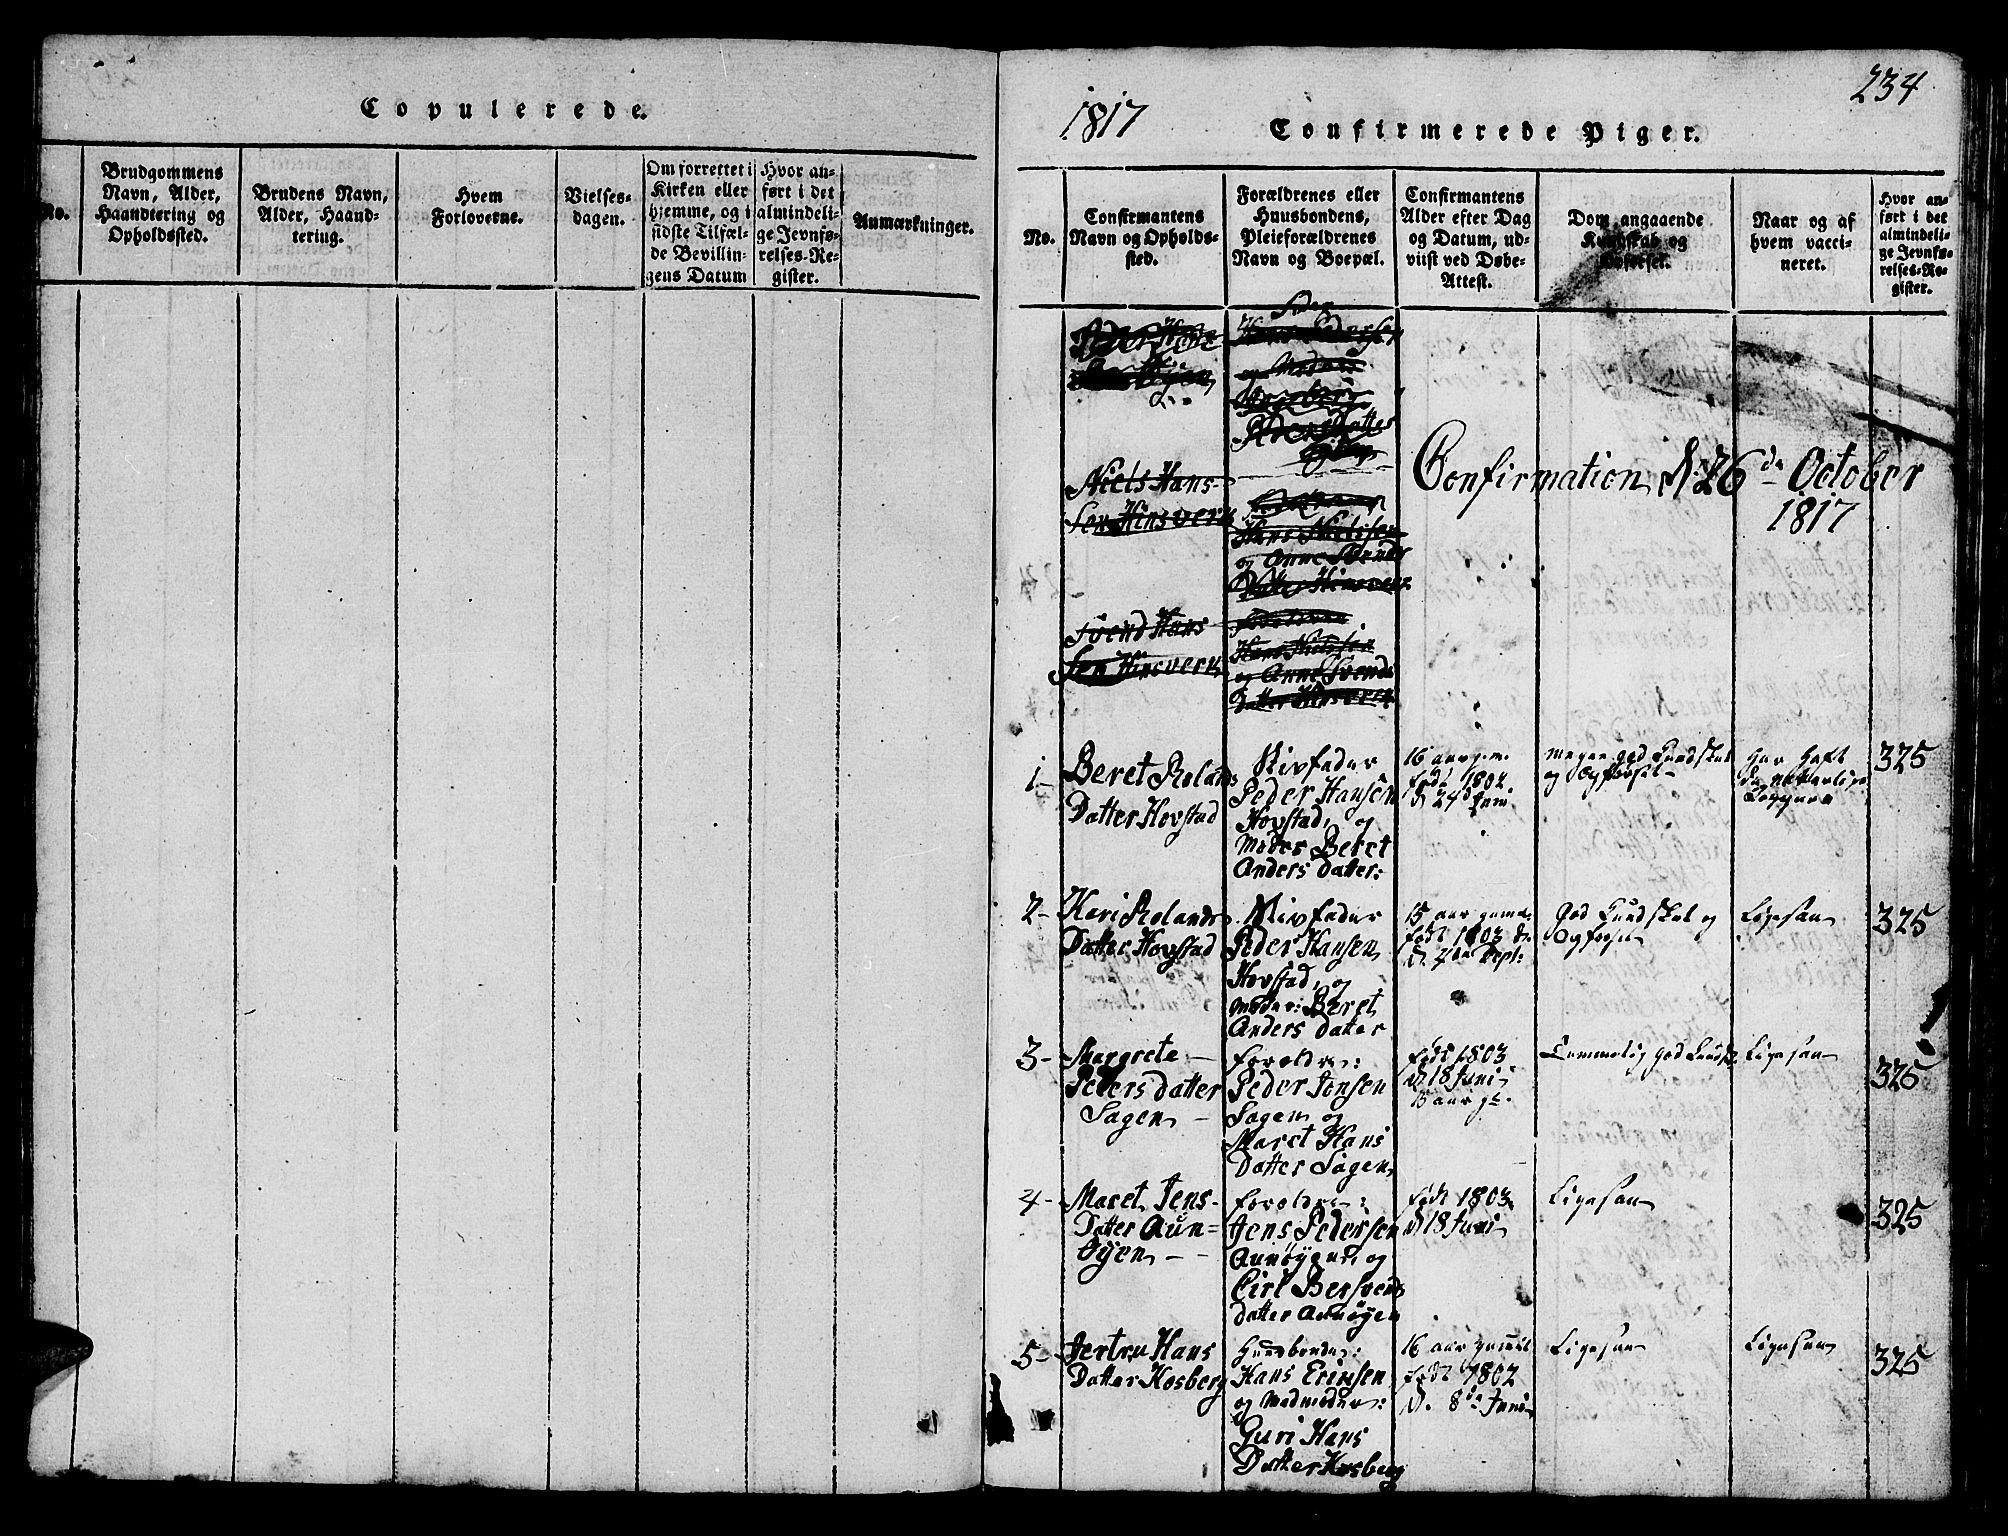 Copulerede.
No.
Brudgommens
Navn, Alder,
Haandtering og
Opholdssted.
Brudens Navn,
Alder, Haand-
tering.
Hvem
Forloverne.
Vielses-
dagen.
Om forrettet i
Kirken eller
hjemme, og i
sidste Tilfæl-
de Bevillin-
gens Datum
Hvor an-
ført i det
almindeli-
ge Jevnfø-
relses-Re-
gister.
Anmærkninger.
234
1817
Confirmerede Piger.
No.
Confirmantens
Navn og Opholds-
sted.
Forældrenes eller
Huusbondens,
Pleieforældrenes
Navn og Boepæl.
Confirmantens
Alder efter Dag
og Datum, ud-
viist ved Døbe-
Attest.
Dom angaaende
Kundskab og
Opførsel.
Naar og af
hvem vacci-
neret.
Hvor an-
ført i det
almindeli-
ge Jevnfø-
relses-Re-
gister.
Niels Hans-
Sen Hinsverk
Hans Nielssen
og Anne Svends
Datter Hinsverk
Confirmation d: 26de October
1817
Svend Hans
Sen Hinsverk
Hans Nielssen
og Anne Svends
Datter Hinsverk
1-
Beret Rolands
Datter Hovstad
Stivfader
Peder Hansen
Hovstad, og
Moder Beret
Anders datter:
16 aar
født 1802
d 24 Juni
Megen god Kundskab
og Opførsel-
Har haft
de naturlige
Kopper
325
2-
Kari Rolands
Datter Hovstad
Stivfader
Peder Hansen
Hovstad, og
Moder: Beret
Anders datter
15 aar
født 1803
Sept:
God Kundskab og
Opførsel
Ligesaa
325
3-
Margrete -
Peders datter
Sagen -
Foreldre:
Peder Jonsen
Sagen og
Maret Hans
Datter Sagen
født 1803
d 18 Juni
15 aar
Temmelig god Kundsk.
Ligesaa
325
4-
Maret Jens-
Datter Aun-
øyen - -
Foreldre:
Jens Pedersen
Aunøyen og
Ciri Bersvends
datter Aunøyen
født 1803
d 18 Juni
Ligesaa
325
5-
Jertru Hans
Datter Hosberg
Huusbonde:
Hans Ericsen
og Madmoder:
Guri Hans
Datter Hosberg
16 aar gammel
født 1802
d. 8de Juni
Ligesaa
Ligesaa
325